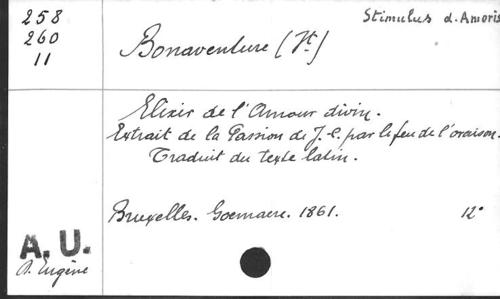 258
260
11
Stimulus d. Amoris
Bonaventure (St)
Elixir de l'Amour divin.
Extrait de la Passion de J.-C. par le feu de l'oraison.
Traduit du texte latin.
Bruxelles. Goemaere. 1861. 12°
A. U.
Eugène